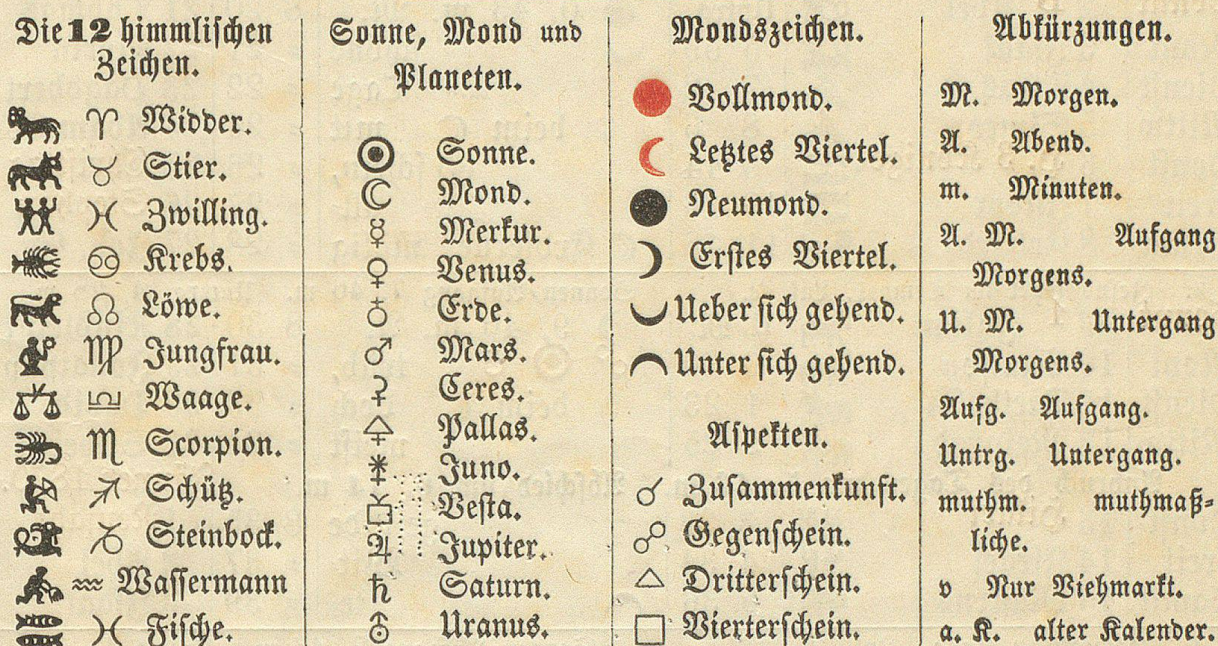 Die 12 himmlischen
Zeichen.
♈ Widder.
♉ Stier.
♓ Zwilling.
♋ Krebs.
♌ Löwe.
♍ Jungfrau.
♎ Waage.
♏ Scorpion.
♐ Schütz.
♑ Steinbock.
♒ Wassermann
♓ Fische.
Sonne, Mond und
Planeten.
☉ Sonne.
☾ Mond.
☿ Merkur.
♀ Venus.
♁ Erde.
♂ Mars.
⚳ Ceres.
⚴ Pallas.
⚵ Juno.
⚶ Vesta.
♃ Jupiter.
♄ Saturn.
⛢ Uranus.
Mondszeichen.
Vollmond.
Letztes Viertel.
Neumond.
Erstes Viertel.
Ueber sich gehend.
Unter sich gehend.
Aspekten.
☌ Zusammenkunft.
☍ Gegenschein.
△ Dritterschein.
□ Vierterschein.
Abkürzungen.
M. Morgen.
A. Abend.
m. Minuten.
A. M. Aufgang
Morgens.
U. M. Untergang
Morgens.
Aufg. Aufgang.
Untrg. Untergang.
muthm. muthmaß-
liche.
v Nur Viehmarkt.
a. K. alter Kalender.